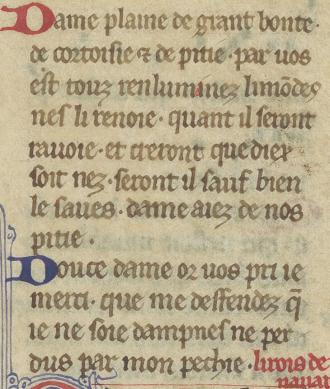 Dame plaine de grant bonte.
de cortoisie ⁊ de pitie. par uos
est touz renluminez li mõdes
neis li renoie. quant il seront
rauoie. et creront que diex
soit nez. seront il sauf bien
le saues. dame aiez de nos
pitie.
Douce dame or uos pri ie
merci. que me deffendez q̃
ie ne soie dampnes ne per
dus par mon pechie. li rois de
nauar